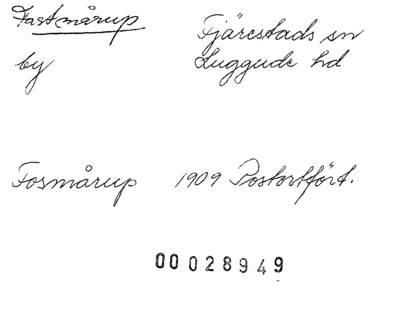 Fastmårup Fjärestads sn
by Luggude hd
Fosmårup 1909 Postortfört.
00028949